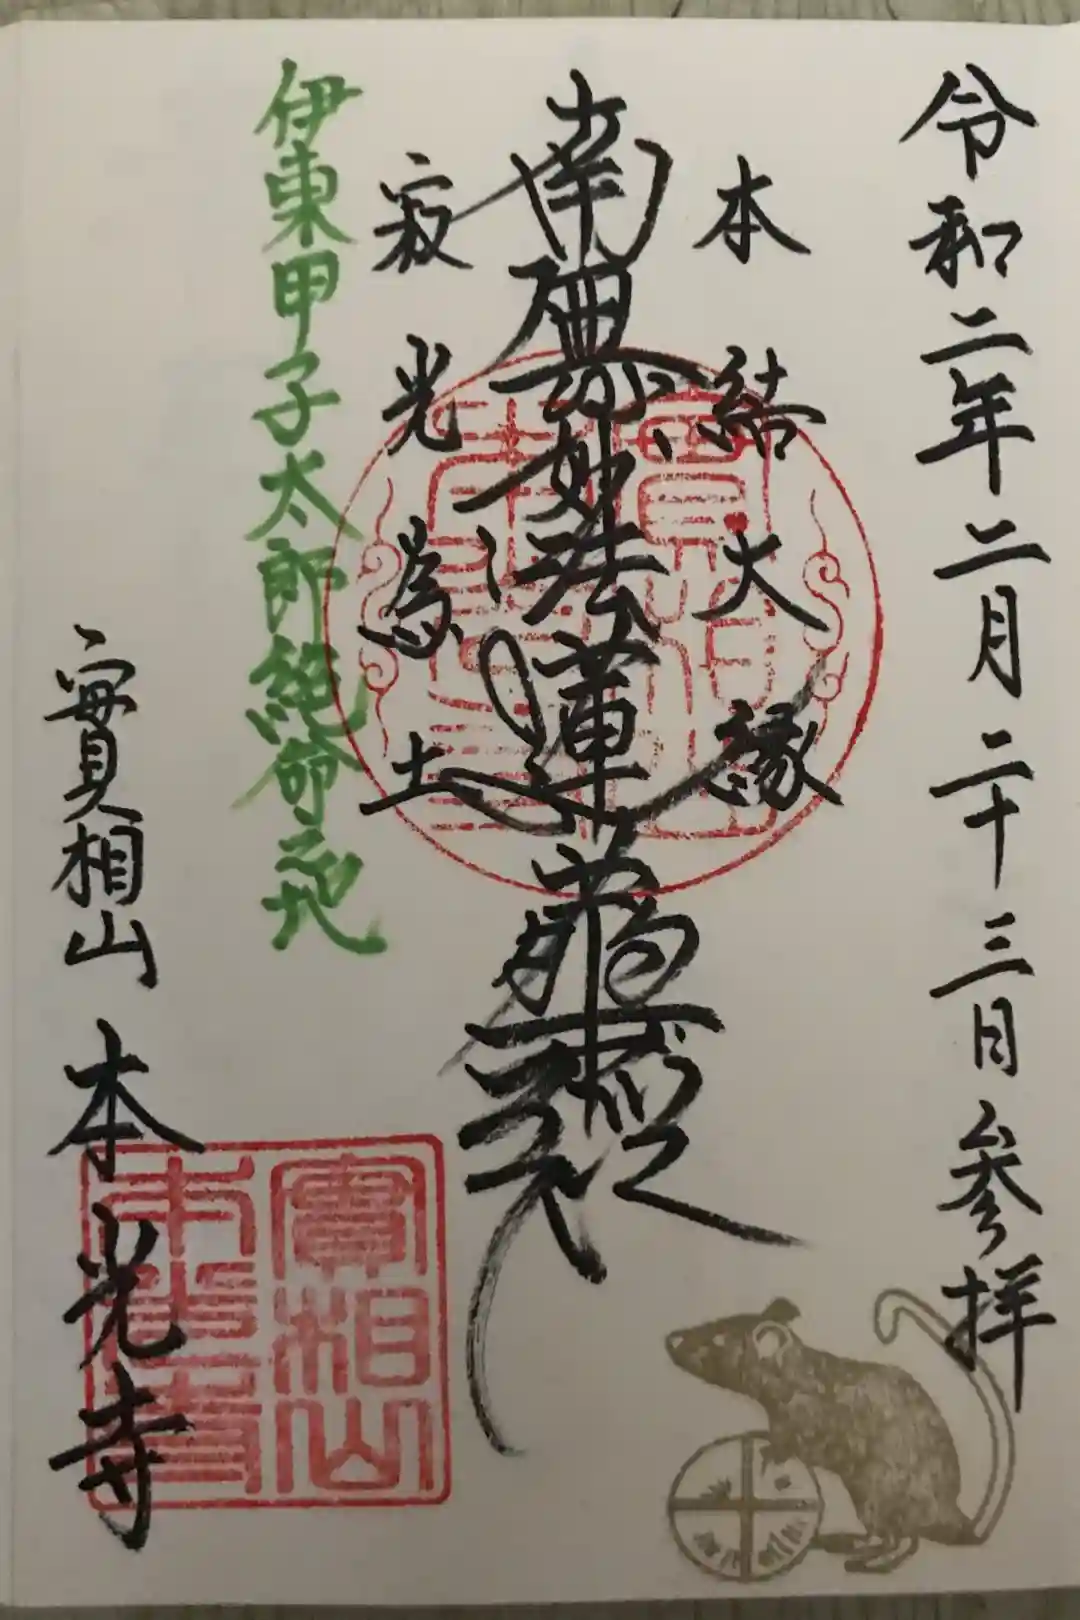 令和二年二月二十三日参拝
本結大縁
南無妙法蓮華経
寂光為土
伊東甲子太郎絶命地
實相山 本光寺
實相山
本光寺